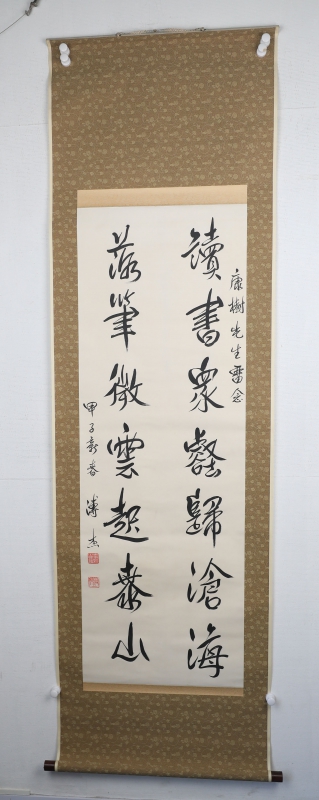 康樹先生留念
讀書衆壑歸滄海
落筆微雲起泰山
甲子新春 溥杰